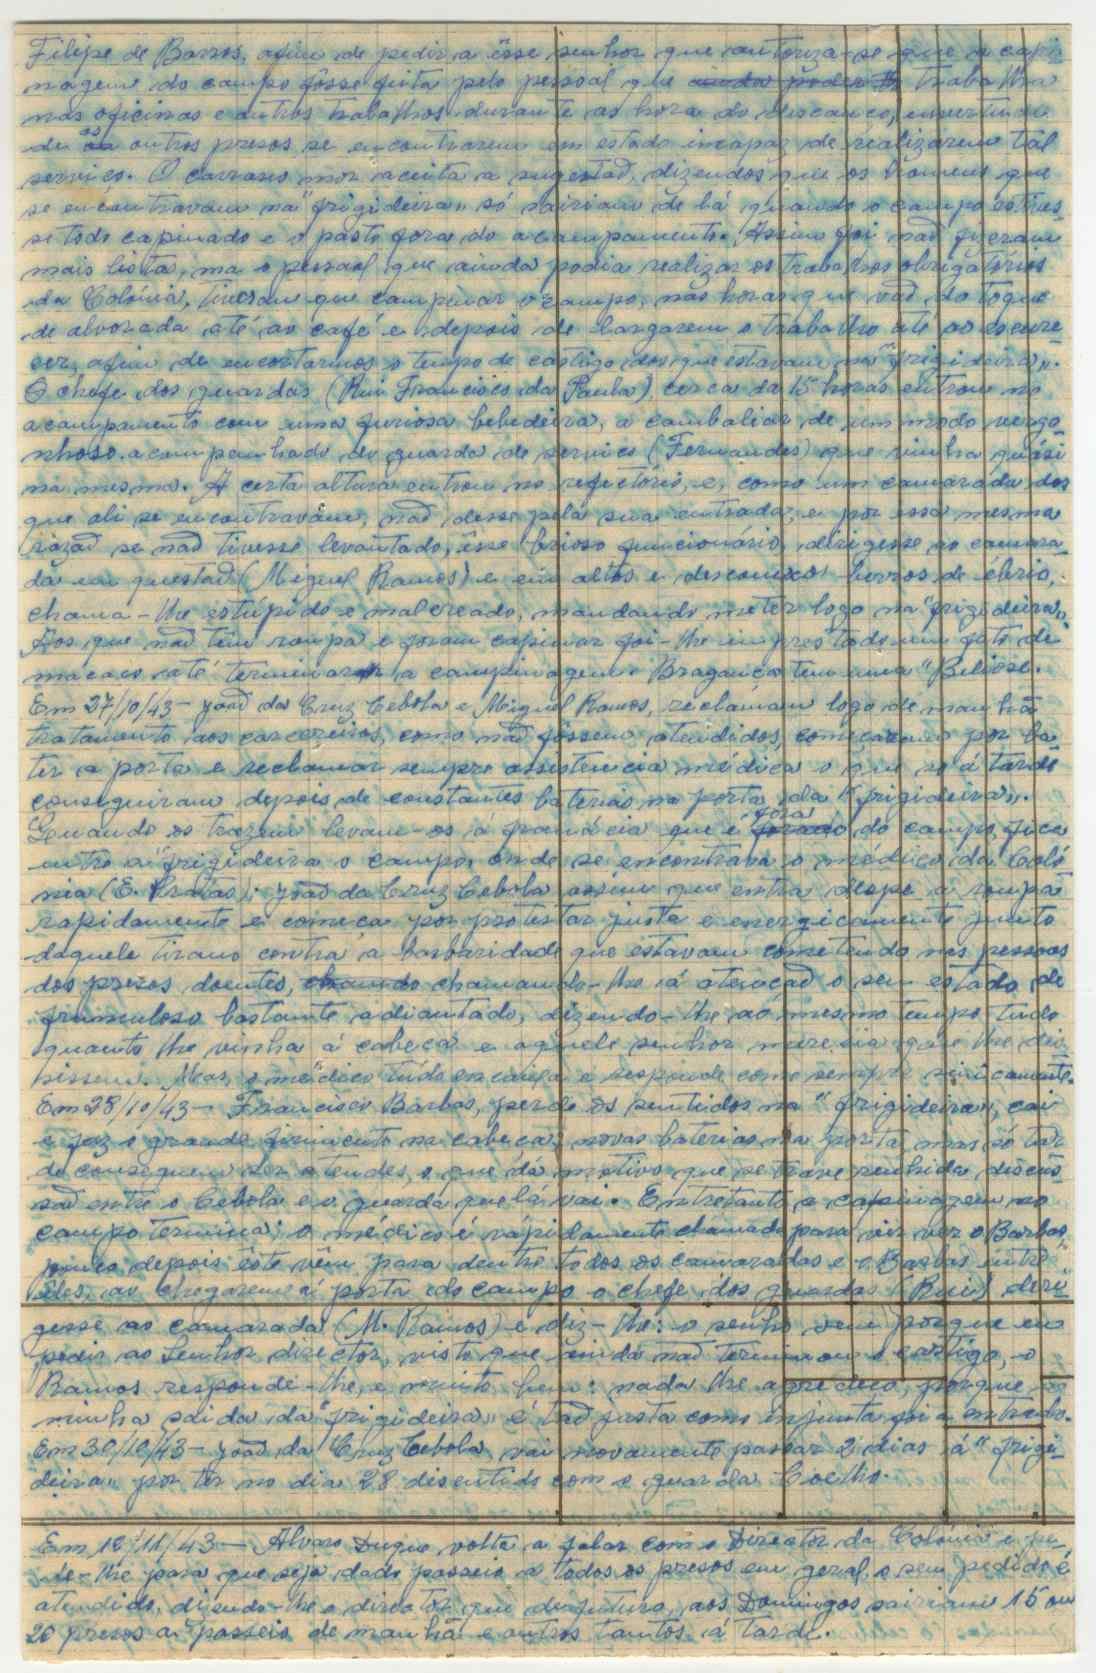 Filipe de Barros, afim de pedir a êsse senhor que autoriza-se que a capi-
nagem do campo fôsse feita pelo pessoal que trabalhava
nas oficinas e outros trabalhos durante as hora do descanço,
de os outros presos se encontrarem em estado incapaz de realizarem tal
serviço. O carrasco mor aceita a sugestaõ, dizendos que os homens que
se encontravam na "frigideira" só sairiam de lá quando o campo estives-
se todo capinado e o pasto fora do acampamento. Assim foi naõ fizeram
mais lista, ma o pessoal que ainda podia realizar os trabalhos obrigatórios
da Colónia, tiveram que campinar o campo, nas horas que vaõ do toque
de alvorada até ao café e depois de largarem o trabalho até ao escure-
cer, afim de encortarmos o tempo de castigo dos que estavam na "frigideira".
O chefe dos guardas (Rui Francisco da Paula) cerca da 15 horas entrou no
acampamento com uma furiosa bebedeira, a cambaliar de um modo vergo-
nhoso acompanhado do guarda de serviço (Fernandes) que vinha quási
na mesma. A certa altura entrou no refeitório, e, como um camarada dos
que ali se encontravam, naõ desse pela sua entrada, e por essa mesma
razaõ se naõ tivesse levantado, êsse brioso funcionário, dirigesse ao camara-
da em questaõ (Miguel Ramos) e em altos e desconexos berros de ébrio,
chama-lhe estúpido e malcreado, mandando meter logo na "frigideira".
Aos que naõ têm roupa e foram capinar foi-lhe imprestado um fato de
macaco até terminar a campinagem. Bragança tem uma "Biliose.
Em 27/10/43 - Joaõ da Cruz Cebola e Miguel Ramos, reclamam logo de manhã
tratamento aos carcereiros, como naõ fôssem atendidos, começaram por ba-
ter a porta e reclamar sempre assistencia médica o que só á tarde
conseguiram depois de constantes baterias na porta da "frigideira".
Quando os trazem levam-os á framácia que é fora do campo, fica
entre a "frigideira o campo, onde se encontrava o médico da Coló-
nia (E. Pratas). Joaõ da Cruz Cebola assim que entra despe a roupa
rapidamente e começa por protestar justa e energicamente junto
daquele tirano contra a barbaridade que estavam cometendo nas pessoas
dos presos doentes, chamando-lhe á atençaõ o seu estado de
frunculoso bastante adiantado, dizendo-lhe ao mesmo tempo tudo
quanto lhe vinha á cabeça e aquele senhor merecia que lhe dis-
sissem. Mas, o médico tudo encaixa e responde como sempre sinicamente.
Em 28/10/43 - Francisco Barbas, perde os sentidos na "frigideira", cai
e faz o grande firimento na cabeça, novas baterias na porta, mas só tar-
de conseguem ser atendes, o que dá motivo que se trave renhida discus-
saõ entre o Cebola e o guarda que lá vai. Entretanto a capinagem no
campo termina; o médico é rápidamente chamado para vir ver o Barbas,
pouco depois êste vêm para dentre todos os camaradas e o Barbas entre
êles, ao chegarem á porta do campo o chefe dos guardas (Rui) diri-
gesse ao camarada (M. Ramos) e diz-lhe: o senho vem porque eu
pedir ao Senhor director, visto que ainda naõ terminou o castigo, o
Ramos responde-lhe, e muito bem: nada lhe agredeço, porque a
minha saida da "frigideira" é taõ justa como injusta foi a entrada.
Em 30/10/43 - Joaõ da Cruz Cebola vai novamente passar 2 dias á "frigi-
deira" por ter no dia 28 discutido com o guarda Coelho.
Em 12/11/43 - Alvaro Duque volta a falar com o Director da Colónia e pe-
de-lhe para que seja dado passeio a todos os presos em geral, o seu pedido é
atendido, dizendo-lhe o director que de futuro, aos Domingos sairiam 15 ou
20 presos a passeio de manhã e outros tantos á tarde.